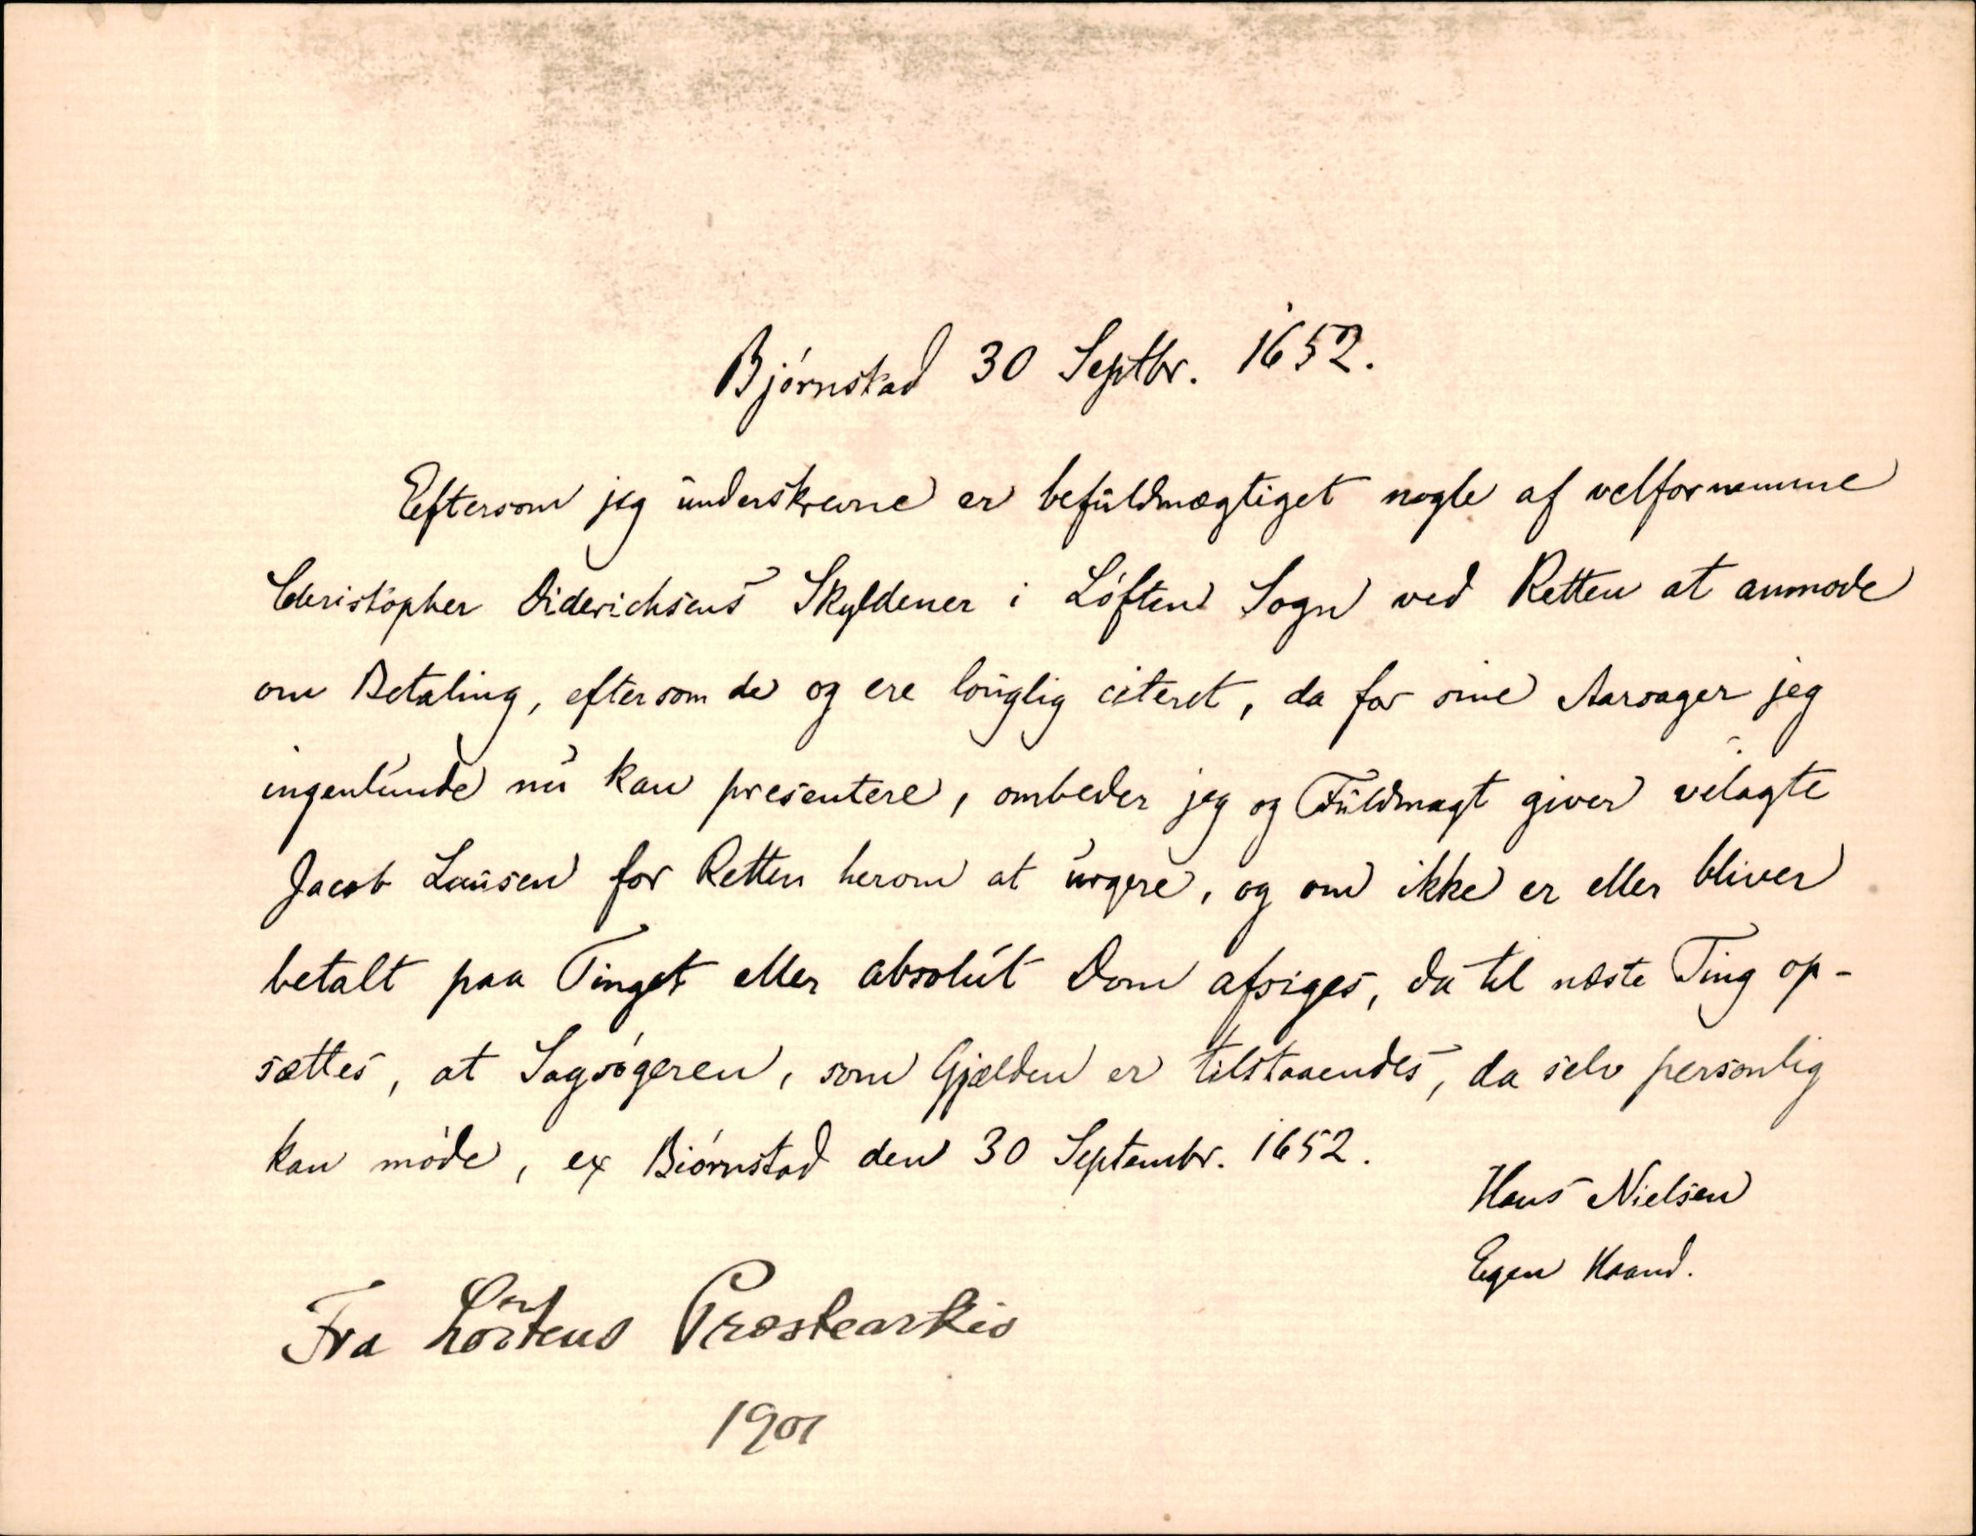 Bjørnstad 30 Septbr. 1652.
Eftersom jeg underskrevne er befuldmægtiget nogle af velfornemme
Christopher Diderichsens Skyldener i Løften Sogn ved Retten at anmode
om Betaling, eftersom de og ere lovglig citeret, da for sine Aarsager jeg
ingenlunde nu kan presentere, ombeder jeg og Fuldmagt giver velagte
Jacob Lausen for Retten herom at urgere, og om ikke er eller bliver
betalt paa Tinget eller absolut Dom afsiges, da til næste Ting op-
sættes, at Sagsøgeren, som Gjælden er tilstaaendes, da selv personlig
kan møde, ex Biørnstad den 30 Septembr. 1652.
Hans Nielsen
Egen Haand.
Fra Løitens Præstearkiv
1901